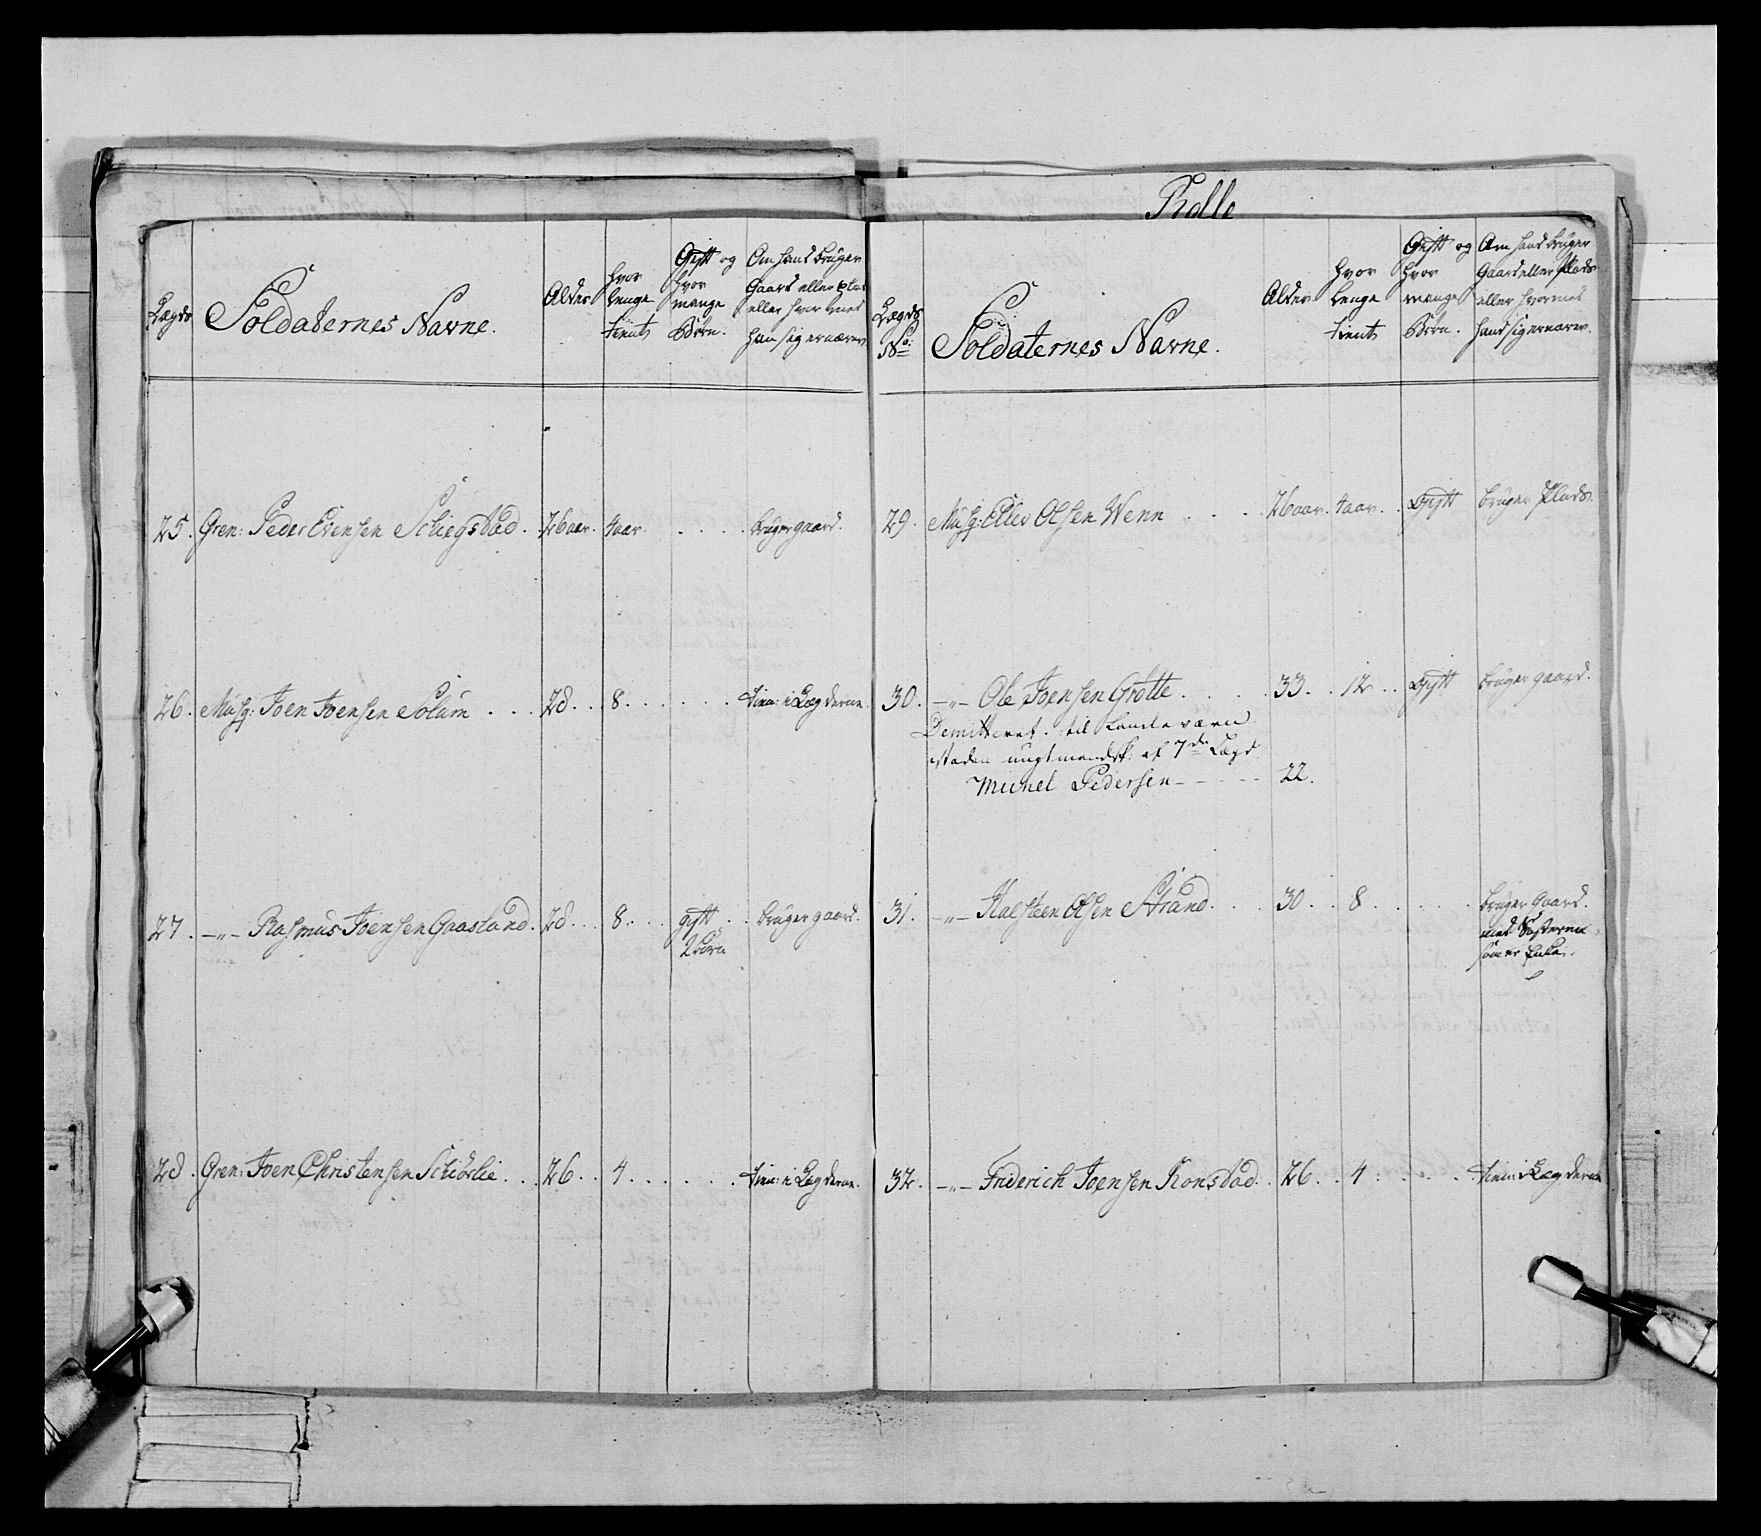 Rolle
Lægds
Soldaternes Navne.
Alder
hvor lenge tient
Gift og hvor mange Børn.
Om hand bruger Gaard eller Plas eller hvor med han sig ernærer
25. Gren: Peder Evensen Schiegstad. 26 aar. 4 aar. . . . bruger gaard.
26. Musq: Joen Joensen Solum . . . 28 . . . 8 . . . . . . tien: i Lægderne.
27. –„– Rasmus Joensen Gaasland. 28 . . . 8 . . . gift . . bruger gaard.
2 børn
28. Gren: Joen Christensen Schiørlie . . . 26 . . 4 . . . . . . tien: i Lægderne.
Lægds No.
Soldaternes Navne.
Alder
hvor lenge tient
Gift og hvor mange Børn.
Om hand bruger Gaard eller Plads eller hvormed hand sig ernærer.
29. Musq: Eller Olsen Wenn . . . . 26 aar. 4 aar . . Gift bruger Plads.
30. –„– Ole Joensen Grotte . . . . . 33 . . 12 . . Gift bruger gaard.
Demitteret til Landeværn
istaden ungtmandsk: af 7de Lægd
Michel Pedersen – – – – – 22.
31. –„– Halsteen Olsen Strand . . . . 30 . . 8 . . . . . bruger Gaard.
med Søsteren
som er Enke.
32. –„– Friderich Joensen Konstad . . 26 . . 4 . . . . tien: i Lægderne